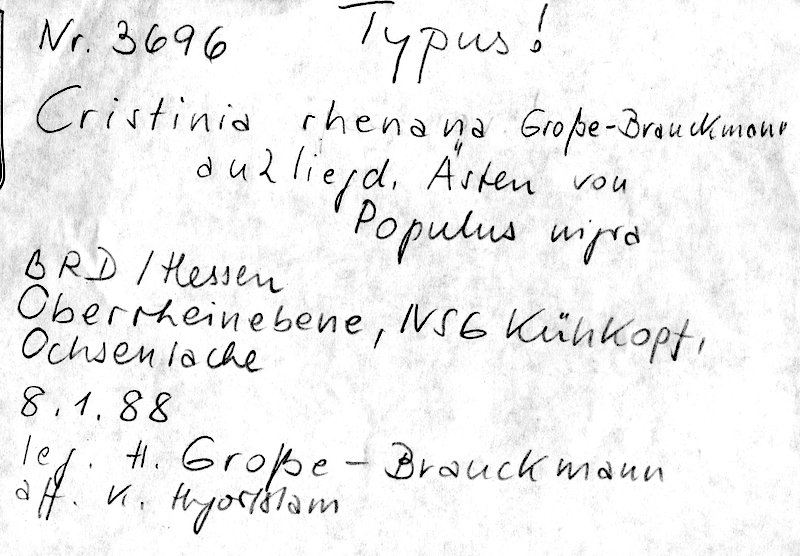 Nr. 3696 Typus!
Cristinia rhenana Große-Brauckmann
an 2 liegd. Ästen von
Populus nigra
BRD / Hessen
Oberrheinebene, NSG Kühkopf,
Ochsenlache
8.1.88
leg. H. Große-Brauckmann
aff. K. Hjortstam